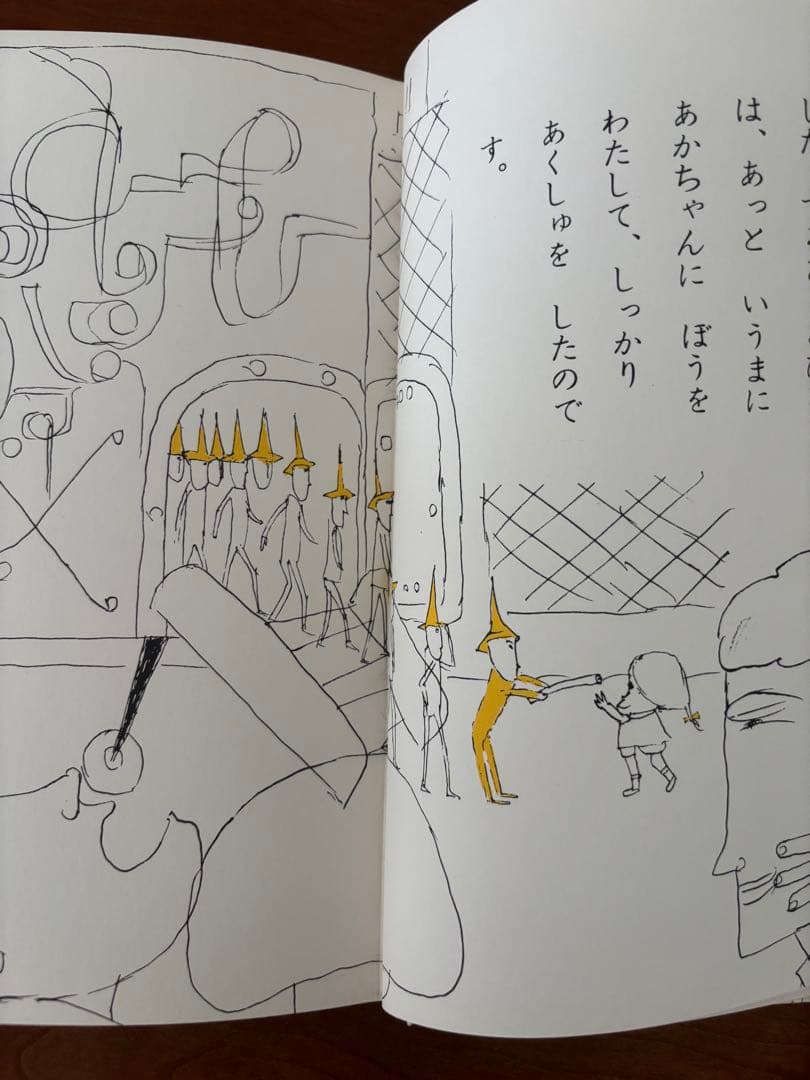 は、あっと いうまに
あかちゃんに ぼうを
わたして、しっかり
あくしゅを したので
す。